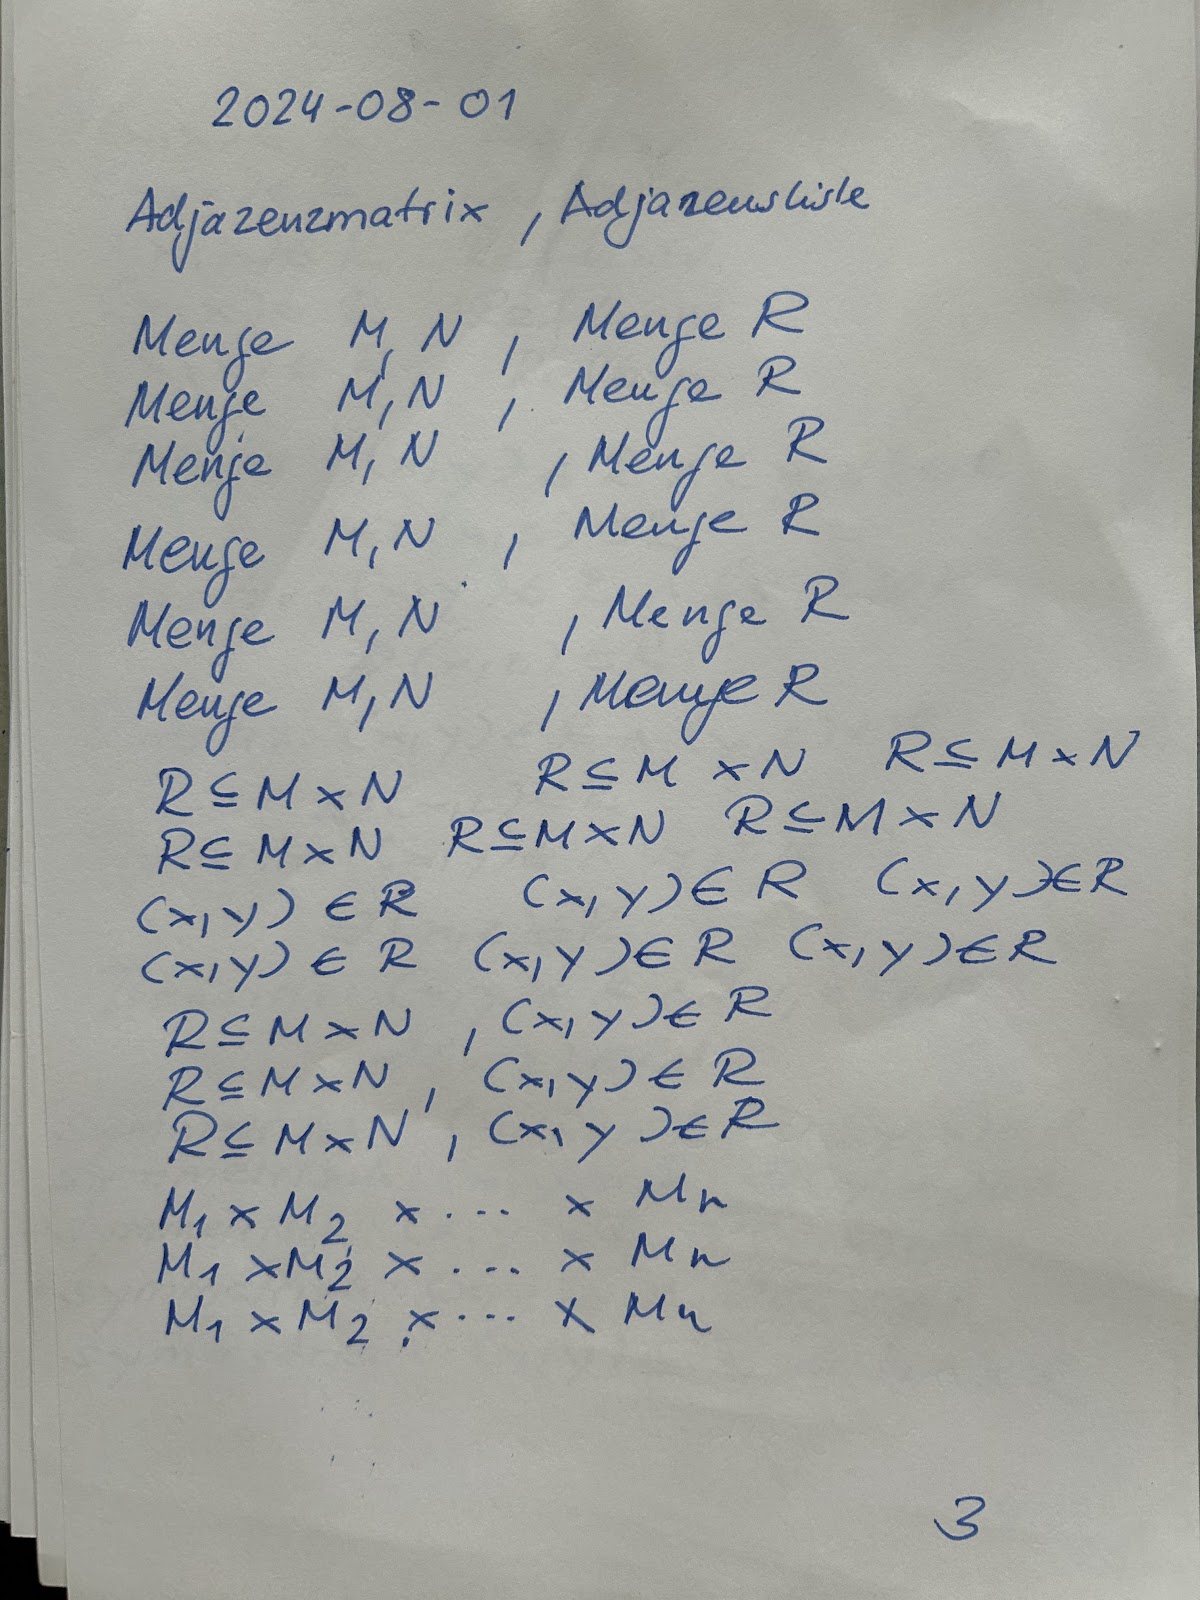 2024-08-01
Adjazenzmatrix , Adjazensliste
Menge M, N , Menge R
Menge M, N , Menge R
Menge M, N , Menge R
Menge M, N , Menge R
Menge M, N , Menge R
Menge M, N , Menge R
R ⊆ M × N R ⊆ M × N R ⊆ M × N
R ⊆ M × N R ⊆ M × N R ⊆ M × N
(x, y) ∈ R (x, y) ∈ R (x, y) ∈ R
(x, y) ∈ R (x, y) ∈ R (x, y) ∈ R
R ⊆ M × N , (x, y) ∈ R
R ⊆ M × N , (x, y) ∈ R
R ⊆ M × N , (x, y) ∈ R
M₁ × M₂ × ... × Mₙ
M₁ × M₂ × ... × Mₙ
M₁ × M₂ × ... × Mₙ
3